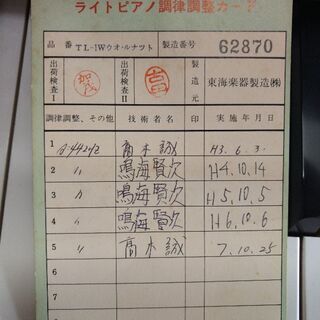 ライトピアノ調律調整カード
品番 TL-1Wウオールナツト 製造番号 62870
出荷検査I 出荷検査II 製造元 東海楽器製造(株)
調律調整、その他 技術者名 印 実施年月日
1 A-442Hz 高木誠 H3.6.3.
2 〃 鳴海賢次 H4.10.14
3 〃 鳴海賢次 H5.10.5
4 〃 鳴海賢次 H6.10.6
5 〃 高木誠 7.10.25
6
7
8